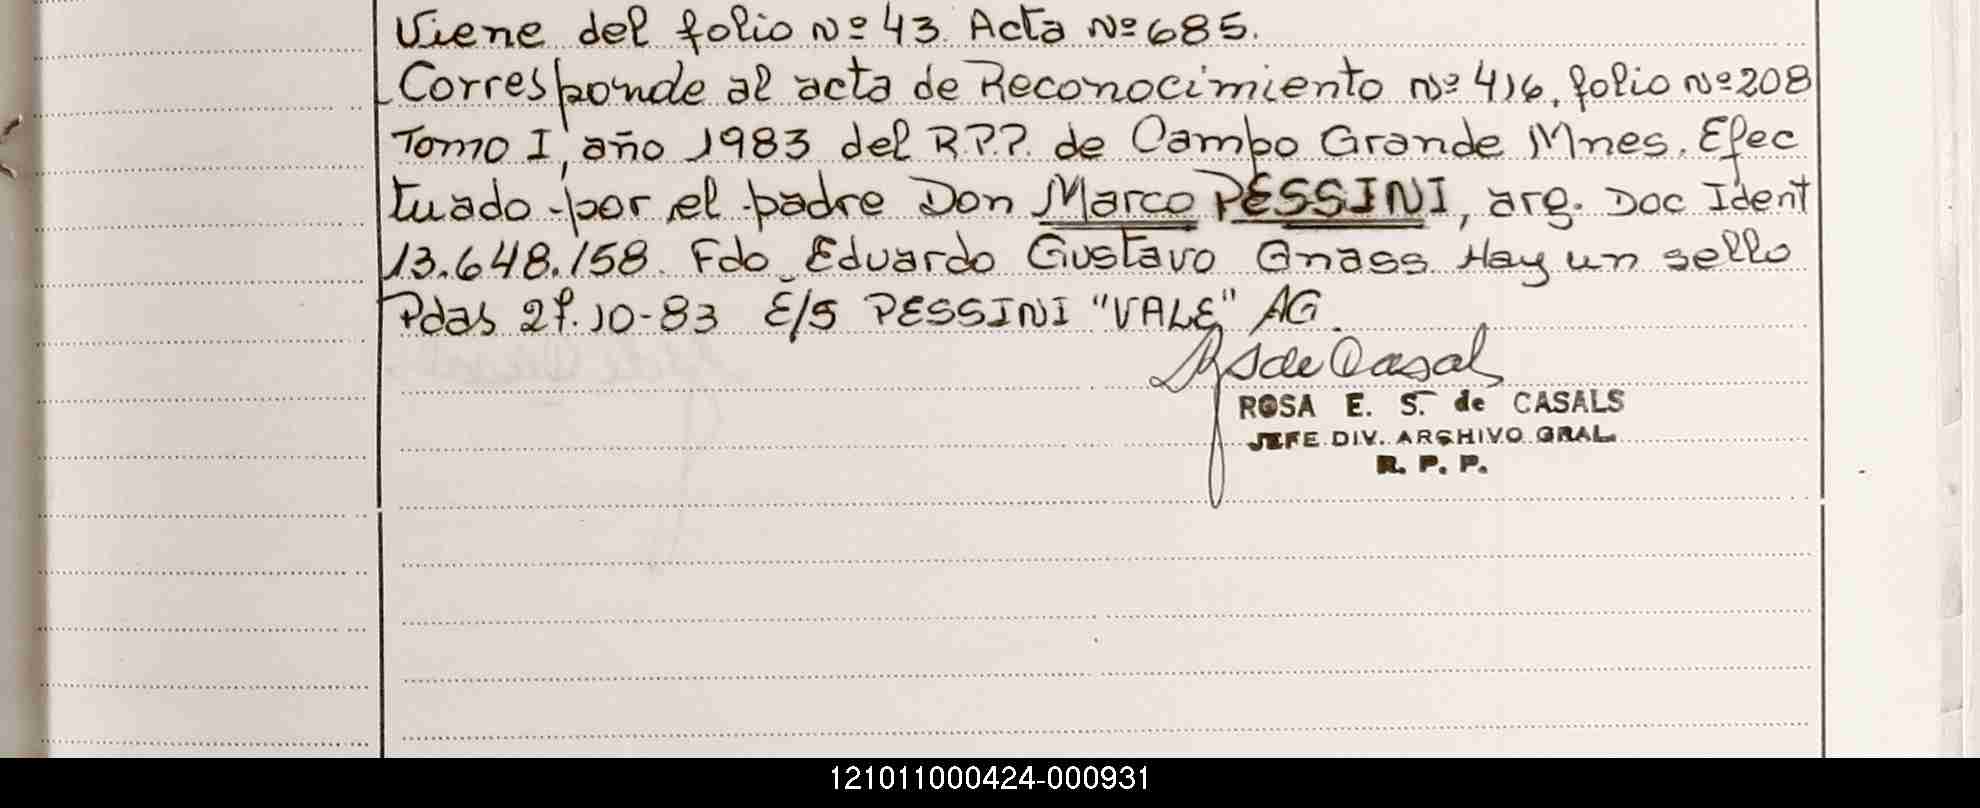 Viene del folio Nº 43. Acta Nº 685.
Corresponde al acta de Reconocimiento Nº 416, folio Nº 208
Tomo I, año 1983 del R.P.P. de Campo Grande Mnes. Efec
tuado por el padre Don Marco PESSINI, arg. Doc Ident
13.648.158. Fdo. Eduardo Gustavo Gnass. Hay un sello
Pdas 10-83 E/S PESSINI "VALE" AG.
de Casals
ROSA E. S. de CASALS
JEFE DIV. ARCHIVO GRAL.
R. P. P.
121011000424-000931